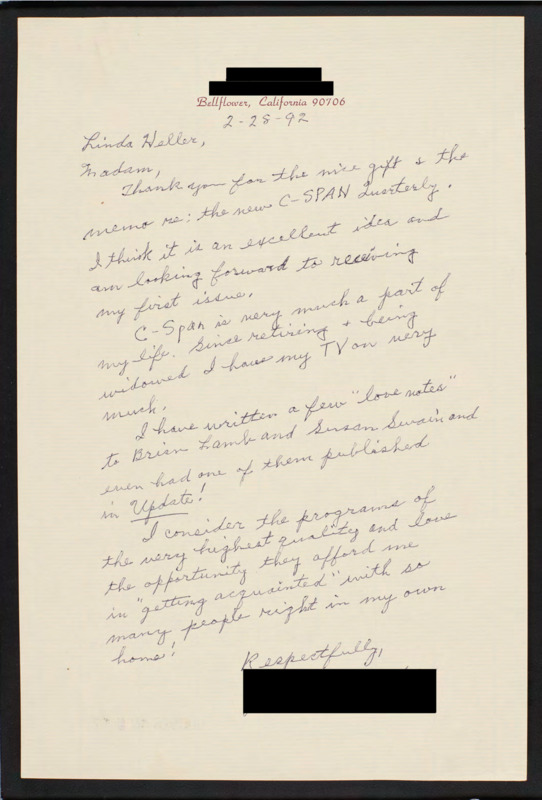 Bellflower, California 90706
2-28-92
Linda Heller,
Madam,
Thank you for the nice gift & the
memo re: the new C-SPAN Quarterly.
I think it is an excellent idea and
am looking forward to receiving
my first issue.
C-Span is very much a part of
my life. Since retiring & being
widowed I have my TV on very
much.
I have written a few "love notes"
to Brian Lamb and Susan Swain and
even had one of them published
in Update!
I consider the programs of
the very highest quality and love
the opportunity they afford me
in "getting acquainted" with so
many people right in my own
home!
Respectfully,